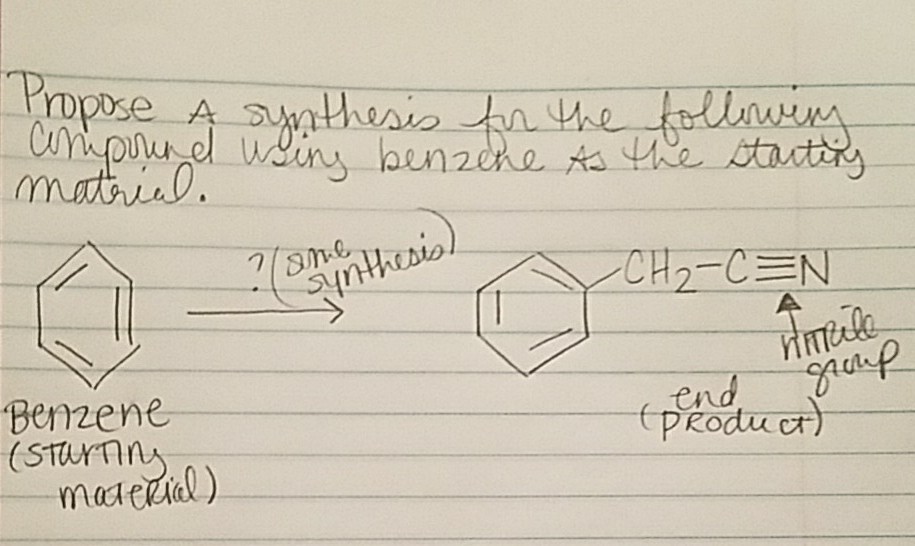 Propose A synthesis for the following
compound using benzene as the starting
material.
? (some
synthesis)
CH2-C≡N
nitrile
group
Benzene
(starting
material)
end
(product)